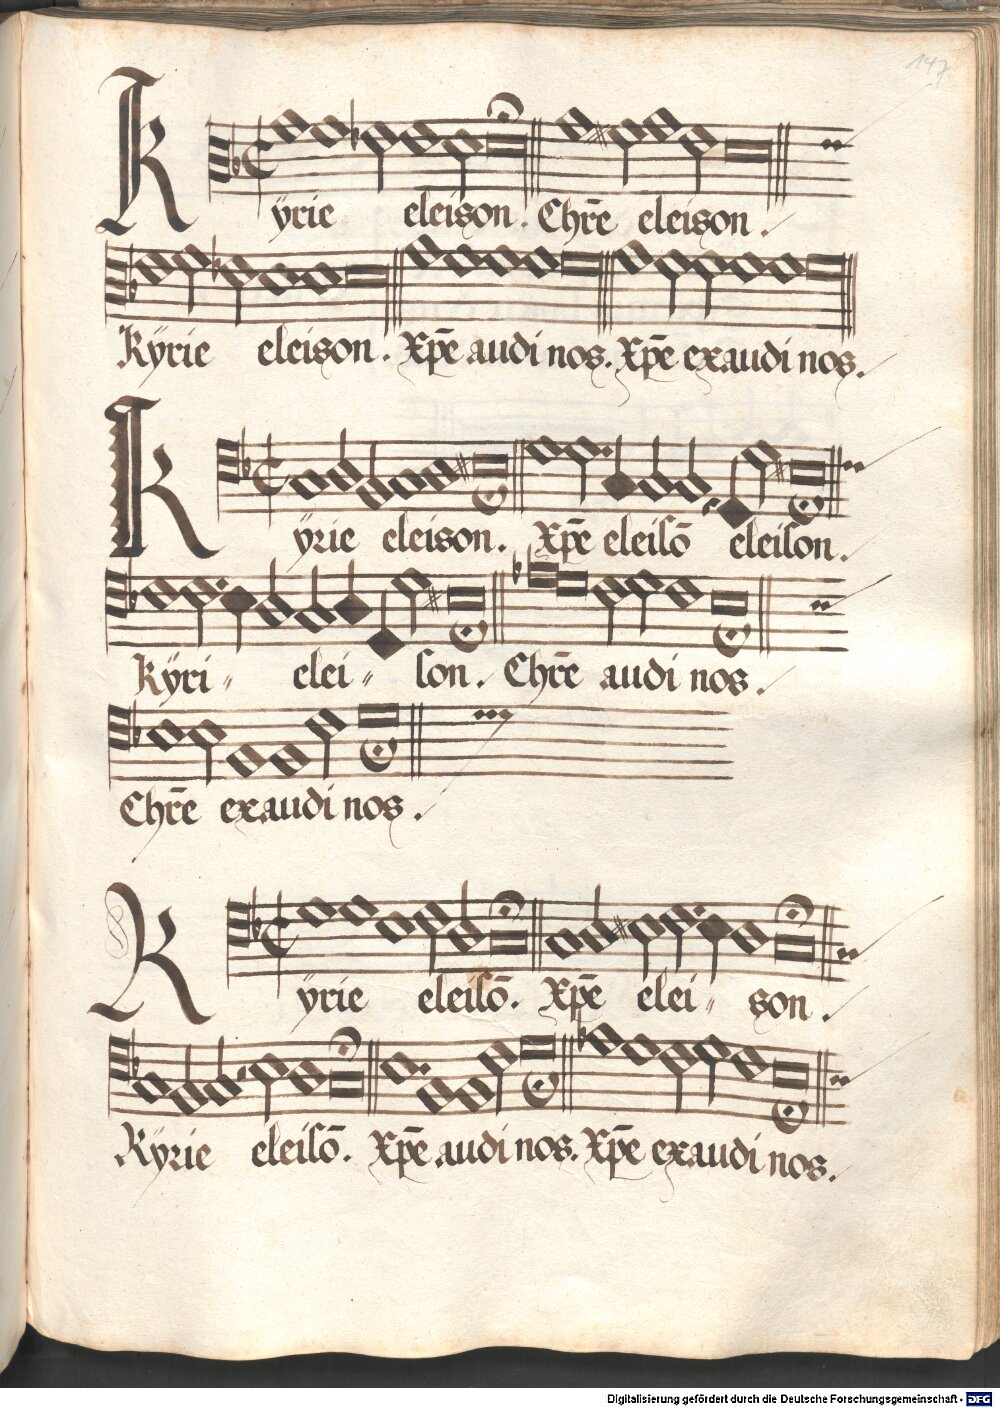 147
Kÿrie eleison. Chr̄e eleison.
Kÿrie eleison. Xp̄e audi nos. Xp̄e exaudi nos.
Kÿrie eleison. Xp̄e eleiſō eleiſon.
Kÿri〃 elei〃 ſon. Chr̄e audi nos.
Chr̄e exaudi nos.
Kÿrie eleiſō. Xp̄e elei〃 son.
Kÿrie eleiſō. Xp̄e audi nos. Xp̄e exaudi nos.
Digitalisierung gefördert durch die Deutsche Forschungsgemeinschaft - DFG